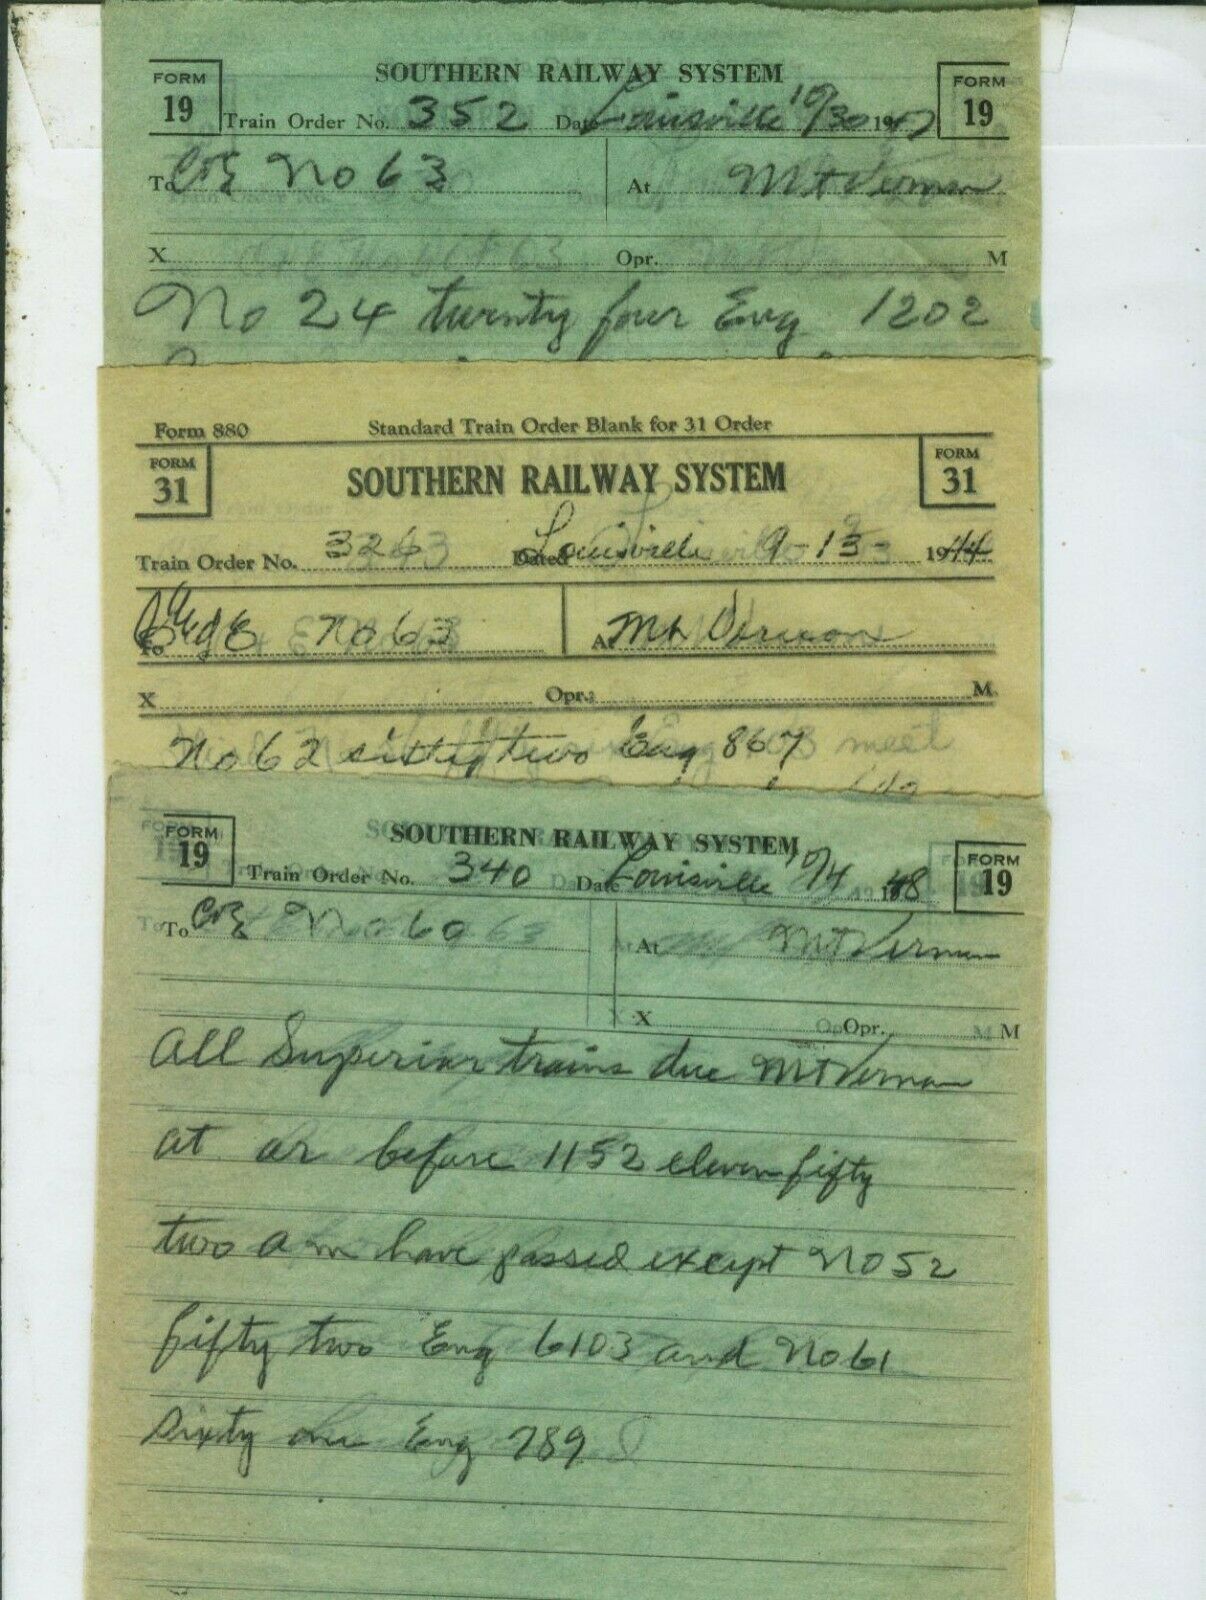 FORM 19 SOUTHERN RAILWAY SYSTEM FORM 19
Train Order No. 352 Date Louisville 10/30 1947
To C&E No 63 At Mt Vernon
X Opr. M
No 24 twenty four Eng 1202
Form 880 Standard Train Order Blank for 31 Order
FORM 31 SOUTHERN RAILWAY SYSTEM FORM 31
Train Order No. 3263 Dated Louisville 9-13- 1944
To C&E No 63 At Mt Vernon
X Opr. M.
No 62 sixty two Eng 867 meet
FORM 19 SOUTHERN RAILWAY SYSTEM FORM 19
Train Order No. 340 Date Louisville 10/4 1948
To C&E No 60 At Mt Vernon
X Opr. M
All Superior trains due Mt Vernon
at or before 1152 eleven fifty
two a m have passed except No 52
fifty two Eng 6103 and No 61
Sixty one Eng 789